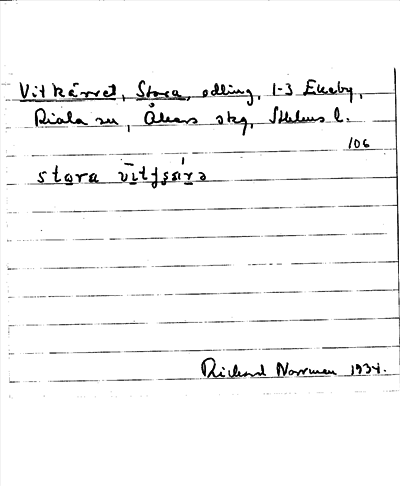 Vitkärret, Stora, odling, 1-3 Ekeby,
Riala sn, Åkers skg, Sthlms l.
106
stora
Richard Norrman 1934.